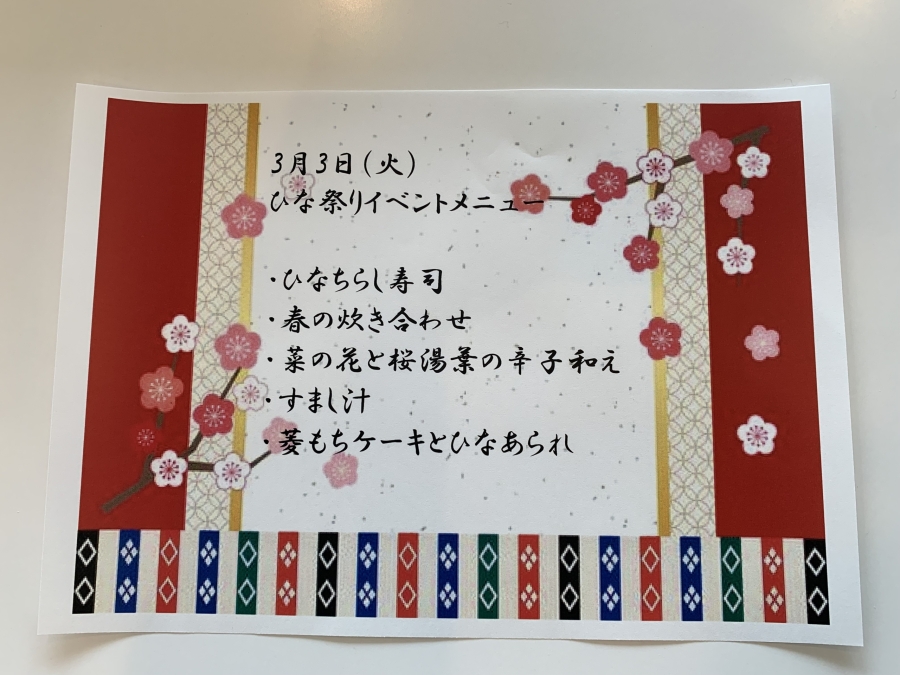 3月3日(火)
ひな祭りイベントメニュー
・ひなちらし寿司
・春の炊き合わせ
・菜の花と桜湯葉の辛子和え
・すまし汁
・菱もちケーキとひなあられ